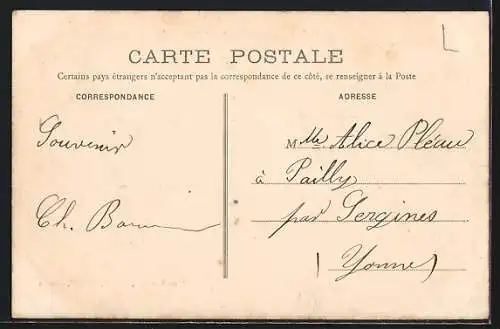 CARTE POSTALE
Certains pays étrangers n'acceptant pas la correspondance de ce côté, se renseigner à la Poste
CORRESPONDANCE
ADRESSE
Souvenir
Ch.
Mlle Alice Pléau
à Pailly
par Sergines
(Yonne)